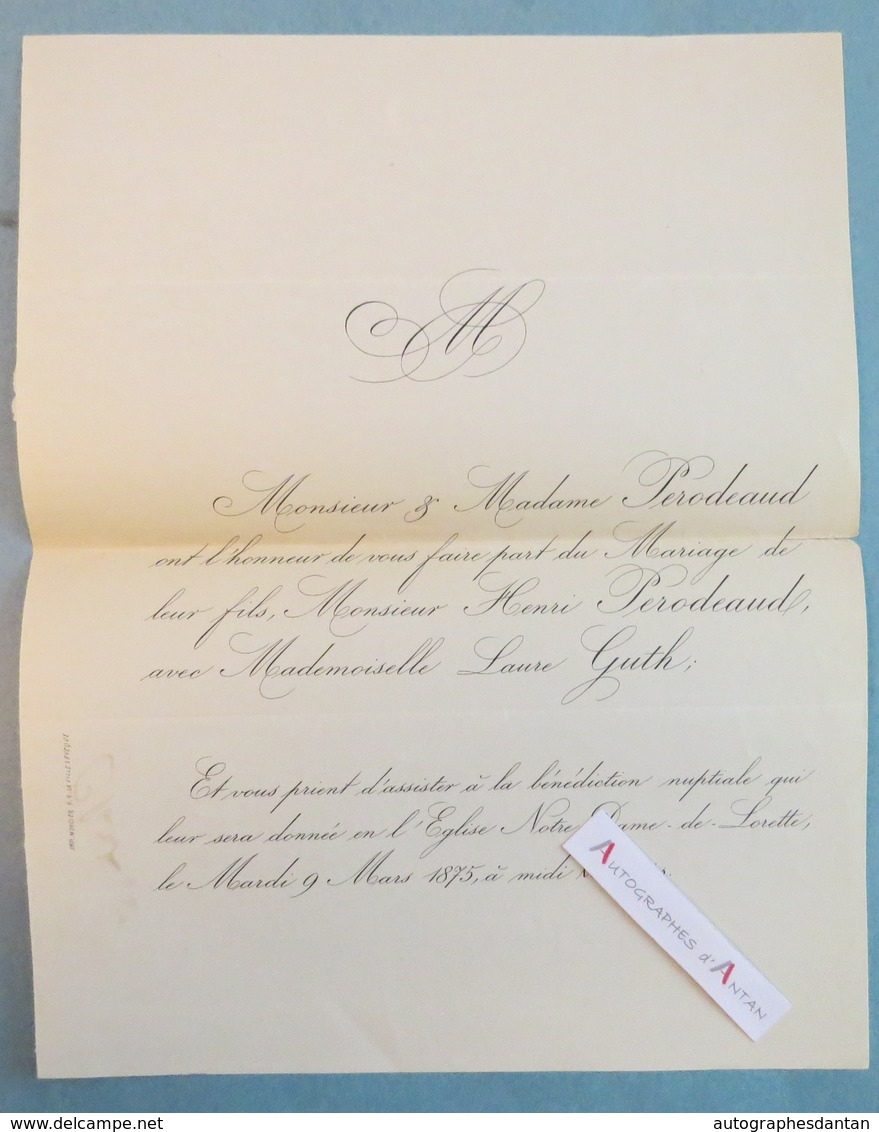 M
Monsieur & Madame Pérodeaud
ont l'honneur de vous faire part du Mariage de
leur fils, Monsieur Henri Pérodeaud,
avec Mademoiselle Laure Guth;
Et vous prient d'assister à la bénédiction nuptiale qui
leur sera donnée en l'Eglise Notre-Dame-de-Lorette,
le Mardi 9 Mars 1875, à midi
AUTOGRAPHES d'ANTAN
www.delcampe.net
autographesdantan